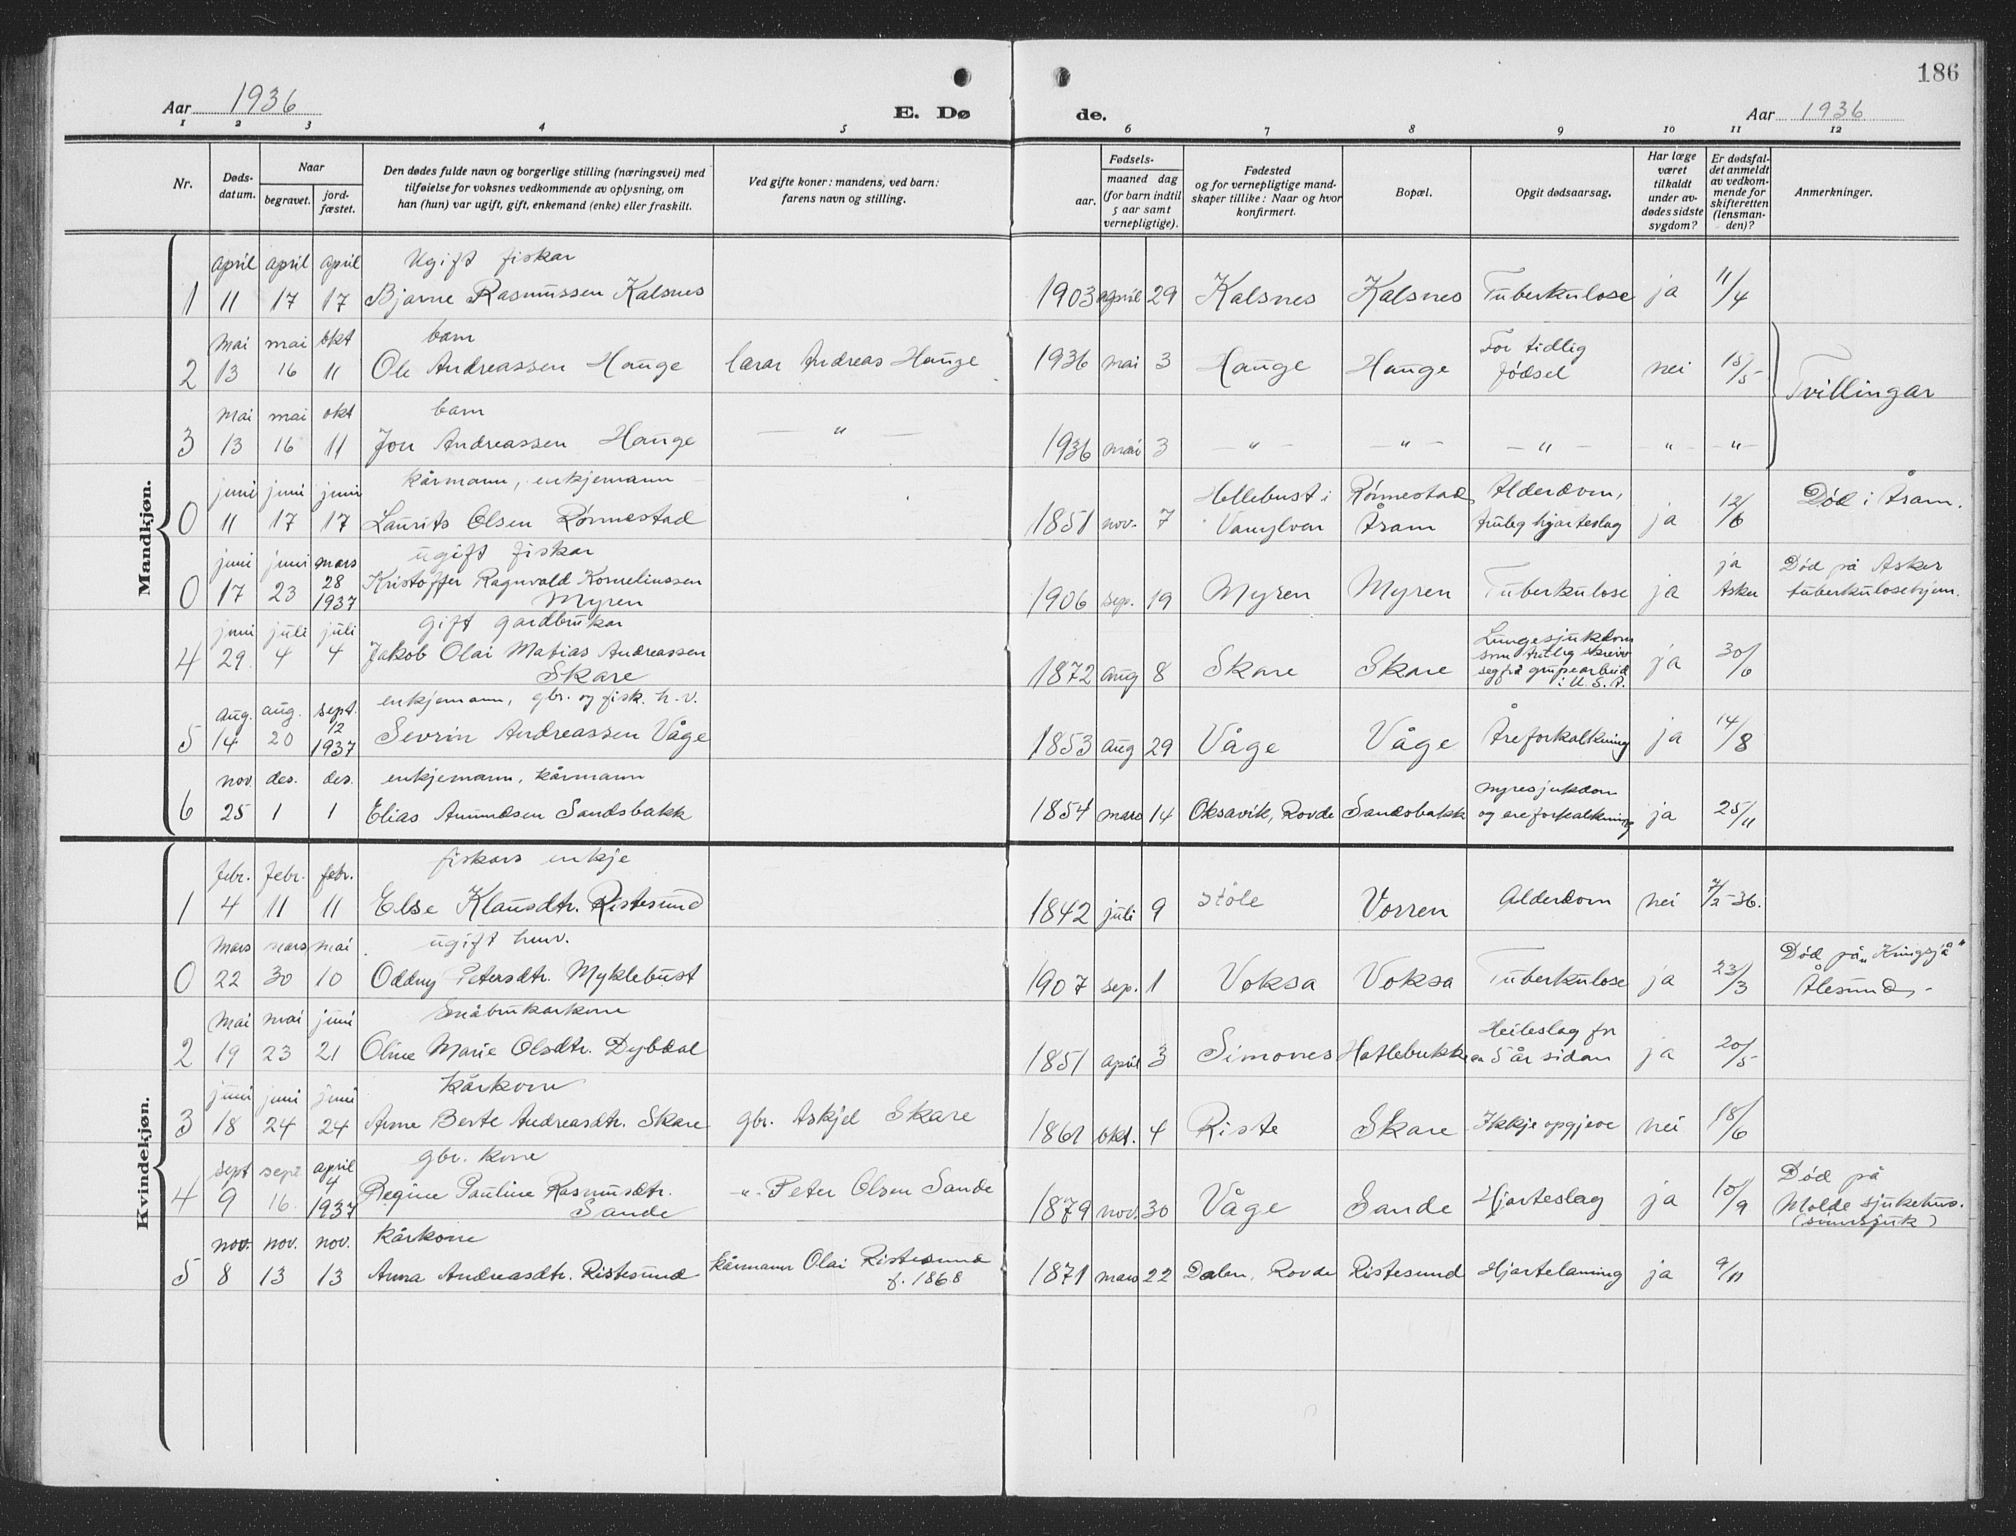 186
Aar 1936 E. Dø de. Aar 1936
1 2 3 4 5 6 7 8 9 10 11 12
Nr. Døds-datum. Naar begravet. jord-fæstet. Den dødes fulde navn og borgerlige stilling (næringsvei) med tilføielse for voksnes vedkommende av oplysning, om han (hun) var ugift, gift, enkemand (enke) eller fraskilt. Ved gifte koner: mandens, ved barn: farens navn og stilling. Fødsels- aar. maaned dag (for barn indtil 5 aar samt vernepligtige). Fødested og for vernepligtige mand-skaper tillike: Naar og hvor konfirmert. Bopæl. Opgit dødsaarsag. Har læge været tilkaldt under av-dødes sidste sygdom? Er dødsfal-det anmeldt av vedkom-mende for skifteretten (lensman-den)? Anmerkninger.
Mandkjøn.
april april april Ugift fiskar
1 11 17 17 Bjarne Rasmussen Kalsnes 1903 april 29 Kalsnes Kalsnes Tuberkulose ja 11/4
mai mai okt barn
2 13 16 11 Ole Andreassen Hauge lærar Andreas Hauge 1936 mai 3 Hauge Hauge For tidlig fødsel nei 15/5 Tvillingar
mai mai okt barn
3 13 16 11 Jon Andreassen Hauge — " — 1936 mai 3 — " — — " — — " — " — " —
juni juni juni kårmann, enkjemann
0 11 17 17 Laurits Olsen Rønnestad 1851 nov. 7 Hellebust i Vanylven Rønnestad Åram Alderdom, truleg hjarteslag ja 12/6 Død i Åram.
juni juni mars ugift fiskar
0 17 23 28 1937 Kristoffer Ragnvald Korneliussen Myren 1906 sep. 19 Myren Myren Tuberkulose ja ja Asker Død på Asker tuberkulosehjem.
juni juli juli gift gardbrukar
4 29. 4 4 Jakob Olai Matias Andreassen Skare 1872 aug 8 Skare Skare Lungesjukdom som truleg skreiv seg frå gruvearbeid i U.S.A. ja 30/6
aug. aug. sept. enkjemann, gbr. og fisk. h.v.
5 14 20 12 1937 Sevrin Andreassen Våge 1853 aug 29 Våge Våge Åreforkalkning ja 14/8
nov. des. des. enkjemann, kårmann
6 25 1 1 Elias Amundsen Sandsbakk 1854 mars 14 Oksavik, Rovde Sandsbakk nyresjukdom og åreforkalkning ja 25/11
Kvindekjøn.
febr. febr. febr. fiskars enkje
1 4 11 11 Else Klausdtr. Ristesund 1842 juli 9 Støle Vorren Alderdom nei 7/2-36.
mars mars mai ugift
0 22 30 10 Oddny Petersdtr. Myklebust 1907 sep. 1 Voksa Voksa Tuberkulose ja 23/3 Død på „Kringsjå" Ålesund,-
mai mai juni Småbrukarkone
2 19 23 21 Oline Marie Olsdtr. Dybdal 1851 april 3 Simones Hatlebakk Heileslag for ca 5 år sidan ja 20/5
juni juni juni kårkone
3 18 24 24 Anne Berte Andreasdtr. Skare gbr. Askjel Skare 1861 okt. 4 Riste Skare Ikkje opgjeve nei 18/6
sept sept april gbr. kone
4 9 16 4 1937 Regine Pauline Rasmusdtr. Sande -"- Peter Olsen Sande 1879 nov. 30 Våge Sande Hjarteslag ja 10/9 Død på Molde sjukehus. (sinnsjuk)
nov. nov. nov. kårkone
5 8 13 13 Anna Andreasdtr. Ristesund kårmann Olai Ristesund f. 1868 1871 mars 22 Dalen, Rovde Ristesund Hjartelaming ja 9/11